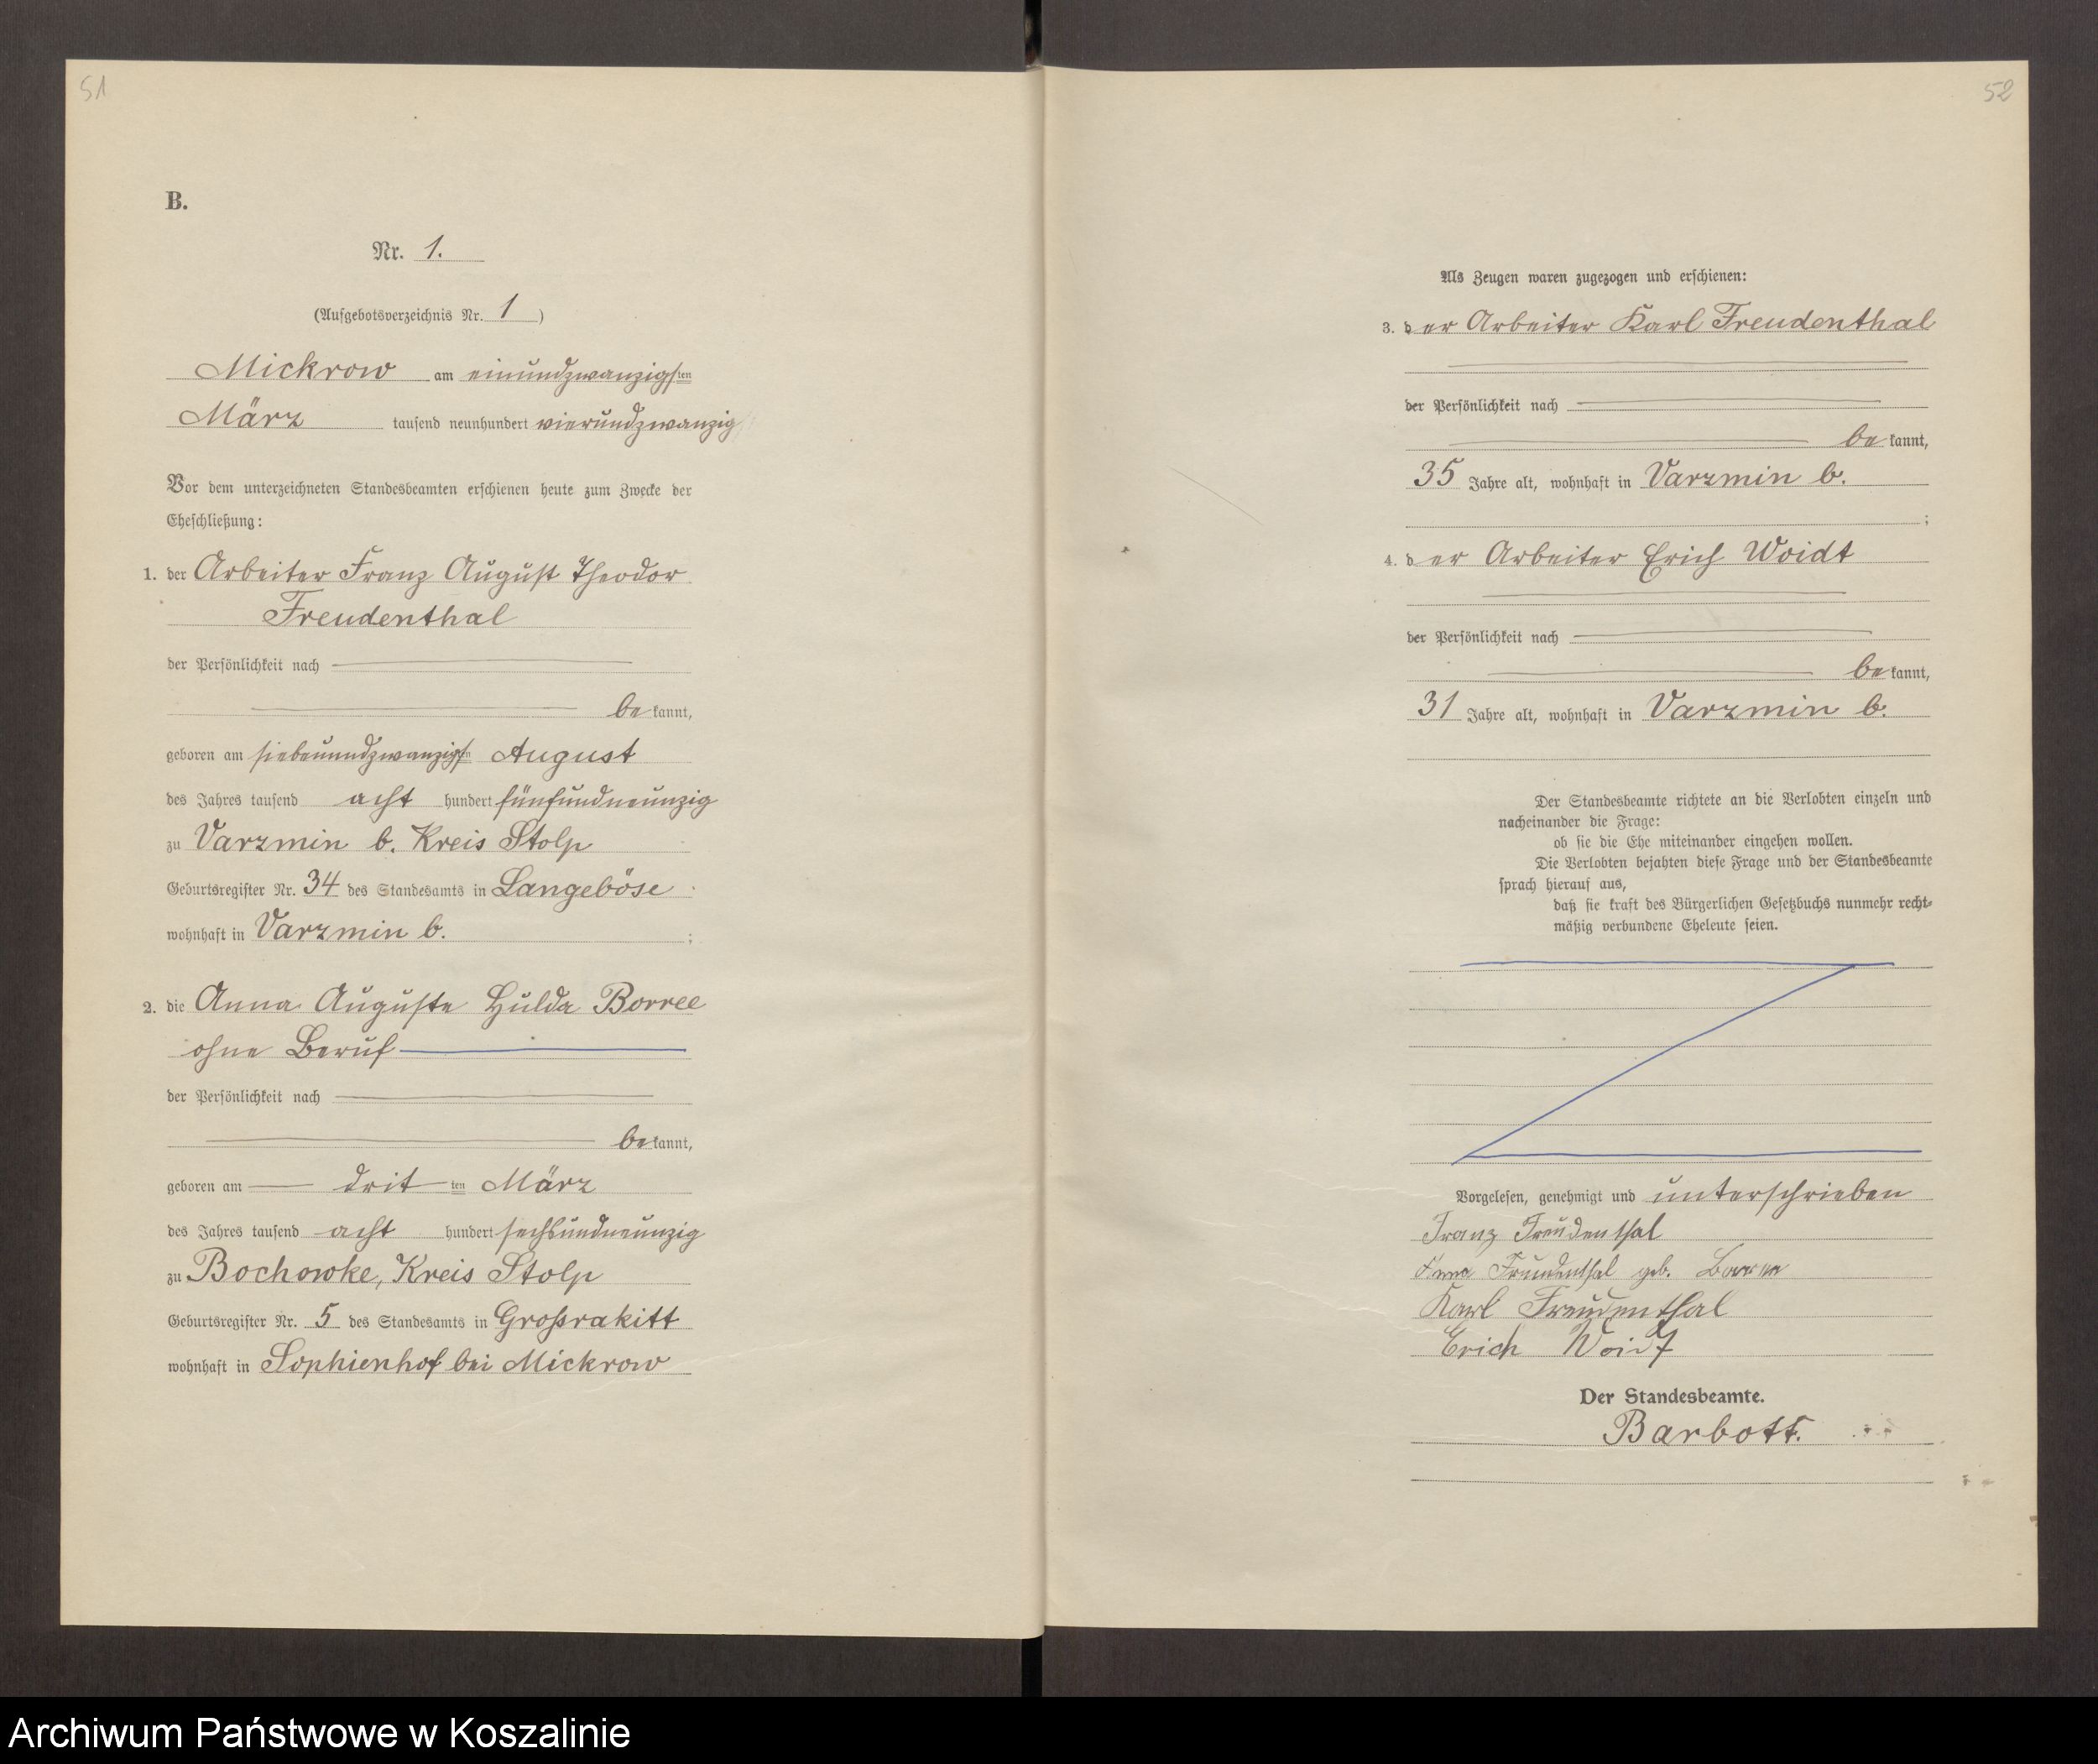 51
B.
Nr. 1.
(Aufgebotsverzeichnis Nr. 1)
Mickrow am einundzwanzigsten
März tausend neunhundert vierundzwanzig
Vor dem unterzeichneten Standesbeamten erschienen heute zum Zwecke der
Eheschließung:
1. der Arbeiter Franz August Theodor
Freudenthal
der Persönlichkeit nach
be kannt,
geboren am siebenundzwanzigsten August
des Jahres tausend acht hundert fünfundneunzig
zu Varzmin b. Kreis Stolp
Geburtsregister Nr. 34 des Standesamts in Langeböse
wohnhaft in Varzmin b. ;
2. die Anna Auguste Hulda Borree
ohne Beruf
der Persönlichkeit nach
be kannt,
geboren am dritten März
des Jahres tausend acht hundert sechsundneunzig
zu Bochowke, Kreis Stolp
Geburtsregister Nr. 5 des Standesamts in Grossrakitt
wohnhaft in Sophienhof bei Mickrow
52
Als Zeugen waren zugezogen und erschienen:
3. der Arbeiter Karl Freudenthal
der Persönlichkeit nach
be kannt,
35 Jahre alt, wohnhaft in Varzmin b.
;
4. der Arbeiter Erich Woidt
der Persönlichkeit nach
be kannt,
31 Jahre alt, wohnhaft in Varzmin b.
Der Standesbeamte richtete an die Verlobten einzeln und
nacheinander die Frage:
ob sie die Ehe miteinander eingehen wollen.
Die Verlobten bejahten diese Frage und der Standesbeamte
sprach hierauf aus,
daß sie kraft des Bürgerlichen Gesetzbuchs nunmehr recht-
mäßig verbundene Eheleute seien.
Vorgelesen, genehmigt und unterschrieben
Franz Freudenthal
Anna Freudenthal geb. Borree
Karl Freudenthal
Erich Woidt
Der Standesbeamte.
Barbott.
Archiwum Państwowe w Koszalinie